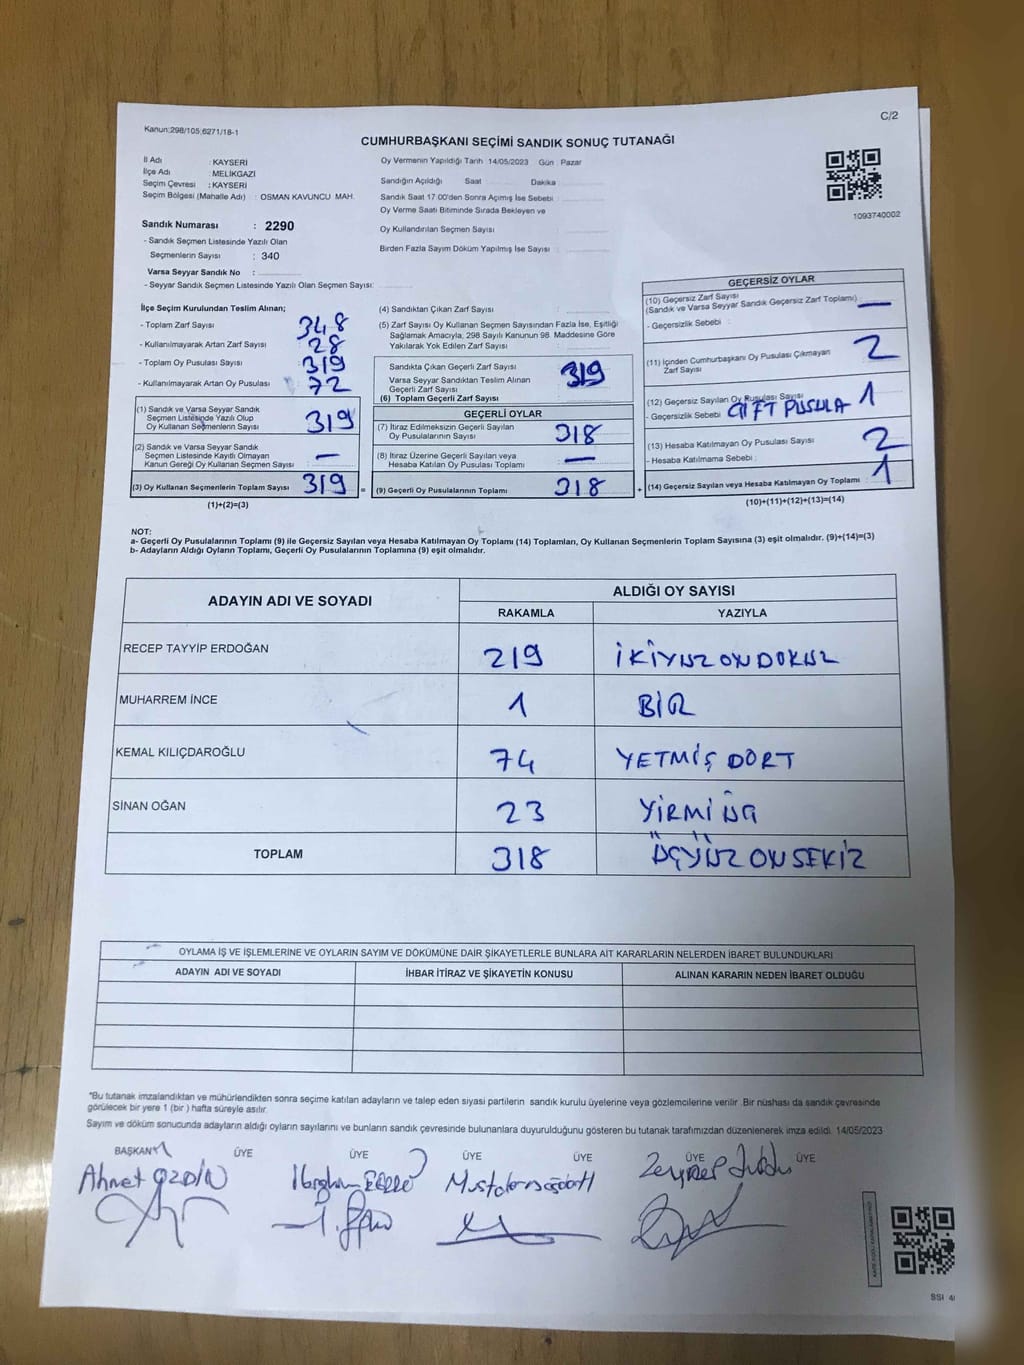 C/2
Kanun:298/105,6271/18-1
CUMHURBAŞKANI SEÇİMİ SANDIK SONUÇ TUTANAĞI
İl Adı : KAYSERİ
İlçe Adı : MELİKGAZİ
Seçim Çevresi : KAYSERİ
Seçim Bölgesi (Mahalle Adı) : OSMAN KAVUNCU MAH.
Oy Vermenin Yapıldığı Tarih 14/05/2023 Gün : Pazar
Sandığın Açıldığı Saat Dakika
Sandık Saat 17:00'den Sonra Açımış İse Sebebi :
Oy Verme Saati Bitiminde Sırada Bekleyen ve
Oy Kullandırılan Seçmen Sayısı :
Birden Fazla Sayım Döküm Yapılmış İse Sayısı :
1093740002
Sandık Numarası : 2290
- Sandık Seçmen Listesinde Yazılı Olan
Seçmenlerin Sayısı : 340
Varsa Seyyar Sandık No :
- Seyyar Sandık Seçmen Listesinde Yazılı Olan Seçmen Sayısı:
İlçe Seçim Kurulundan Teslim Alınan;
- Toplam Zarf Sayısı 348
- Kullanılmayarak Artan Zarf Sayısı 28
- Toplam Oy Pusulası Sayısı 319
- Kullanılmayarak Artan Oy Pusulası 72
(1) Sandık ve Varsa Seyyar Sandık
Seçmen Listesinde Yazılı Olup
Oy Kullanan Seçmenlerin Sayısı 319
(2) Sandık ve Varsa Seyyar Sandık
Seçmen Listesinde Kayıtlı Olmayan
Kanun Gereği Oy Kullanan Seçmen Sayısı —
(3) Oy Kullanan Seçmenlerin Toplam Sayısı 319 =
(1)+(2)=(3)
(4) Sandıktan Çıkan Zarf Sayısı
(5) Zarf Sayısı Oy Kullanan Seçmen Sayısından Fazla İse, Eşitliği
Sağlamak Amacıyla, 298 Sayılı Kanunun 98. Maddesine Göre
Yakılarak Yok Edilen Zarf Sayısı :
Sandıkta Çıkan Geçerli Zarf Sayısı
Varsa Seyyar Sandıktan Teslim Alınan
Geçerli Zarf Sayısı
(6) Toplam Geçerli Zarf Sayısı 319
GEÇERLİ OYLAR
(7) İtiraz Edilmeksizin Geçerli Sayılan
Oy Pusulalarının Sayısı 318
(8) İtiraz Üzerine Geçerli Sayılan veya
Hesaba Katılan Oy Pusulası Toplamı —
(9) Geçerli Oy Pusulalarının Toplamı 318 +
GEÇERSİZ OYLAR
(10) Geçersiz Zarf Sayısı
(Sandık ve Varsa Seyyar Sandık Geçersiz Zarf Toplamı) —
- Geçersizlik Sebebi :
(11) İçinden Cumhurbaşkanı Oy Pusulası Çıkmayan
Zarf Sayısı 2
(12) Geçersiz Sayılan Oy Pusulası Sayısı 1
- Geçersizlik Sebebi ÇİFT PUSULA
(13) Hesaba Katılmayan Oy Pusulası Sayısı 2
- Hesaba Katılmama Sebebi :
(14) Geçersiz Sayılan veya Hesaba Katılmayan Oy Toplamı 1
(10)+(11)+(12)+(13)=(14)
NOT:
a- Geçerli Oy Pusulalarının Toplamı (9) ile Geçersiz Sayılan veya Hesaba Katılmayan Oy Toplamı (14) Toplamları, Oy Kullanan Seçmenlerin Toplam Sayısına (3) eşit olmalıdır. (9)+(14)=(3)
b- Adayların Aldığı Oyların Toplamı, Geçerli Oy Pusulalarının Toplamına (9) eşit olmalıdır.
ADAYIN ADI VE SOYADI ALDIĞI OY SAYISI
RAKAMLA YAZIYLA
RECEP TAYYİP ERDOĞAN 219 İKİYUZ ON DOKUZ
MUHARREM İNCE 1 BİR
KEMAL KILIÇDAROĞLU 74 YETMİŞ DÖRT
SİNAN OĞAN 23 YİRMİ ÜÇ
TOPLAM 318 ÜÇYÜZ ONSEKİZ
OYLAMA İŞ VE İŞLEMLERİNE VE OYLARIN SAYIM VE DÖKÜMÜNE DAİR ŞİKAYETLERLE BUNLARA AİT KARARLARIN NELERDEN İBARET BULUNDUKLARI
ADAYIN ADI VE SOYADI İHBAR İTİRAZ VE ŞİKAYETİN KONUSU ALINAN KARARIN NEDEN İBARET OLDUĞU
*Bu tutanak imzalandıktan ve mühürlendikten sonra seçime katılan adayların ve talep eden siyasi partilerin sandık kurulu üyelerine veya gözlemcilerine verilir. Bir nüshası da sandık çevresinde
görülecek bir yere 1 (bir) hafta süreyle asılır.
Sayım ve döküm sonucunda adayların aldığı oyların sayılarını ve bunların sandık çevresinde bulunanlara duyurulduğunu gösteren bu tutanak tarafımızdan düzenlenerek imza edildi. 14/05/2023
BAŞKAN ÜYE ÜYE ÜYE ÜYE ÜYE ÜYE
Ahmet ÖZDİN İbrahim Mustafa Zeynep